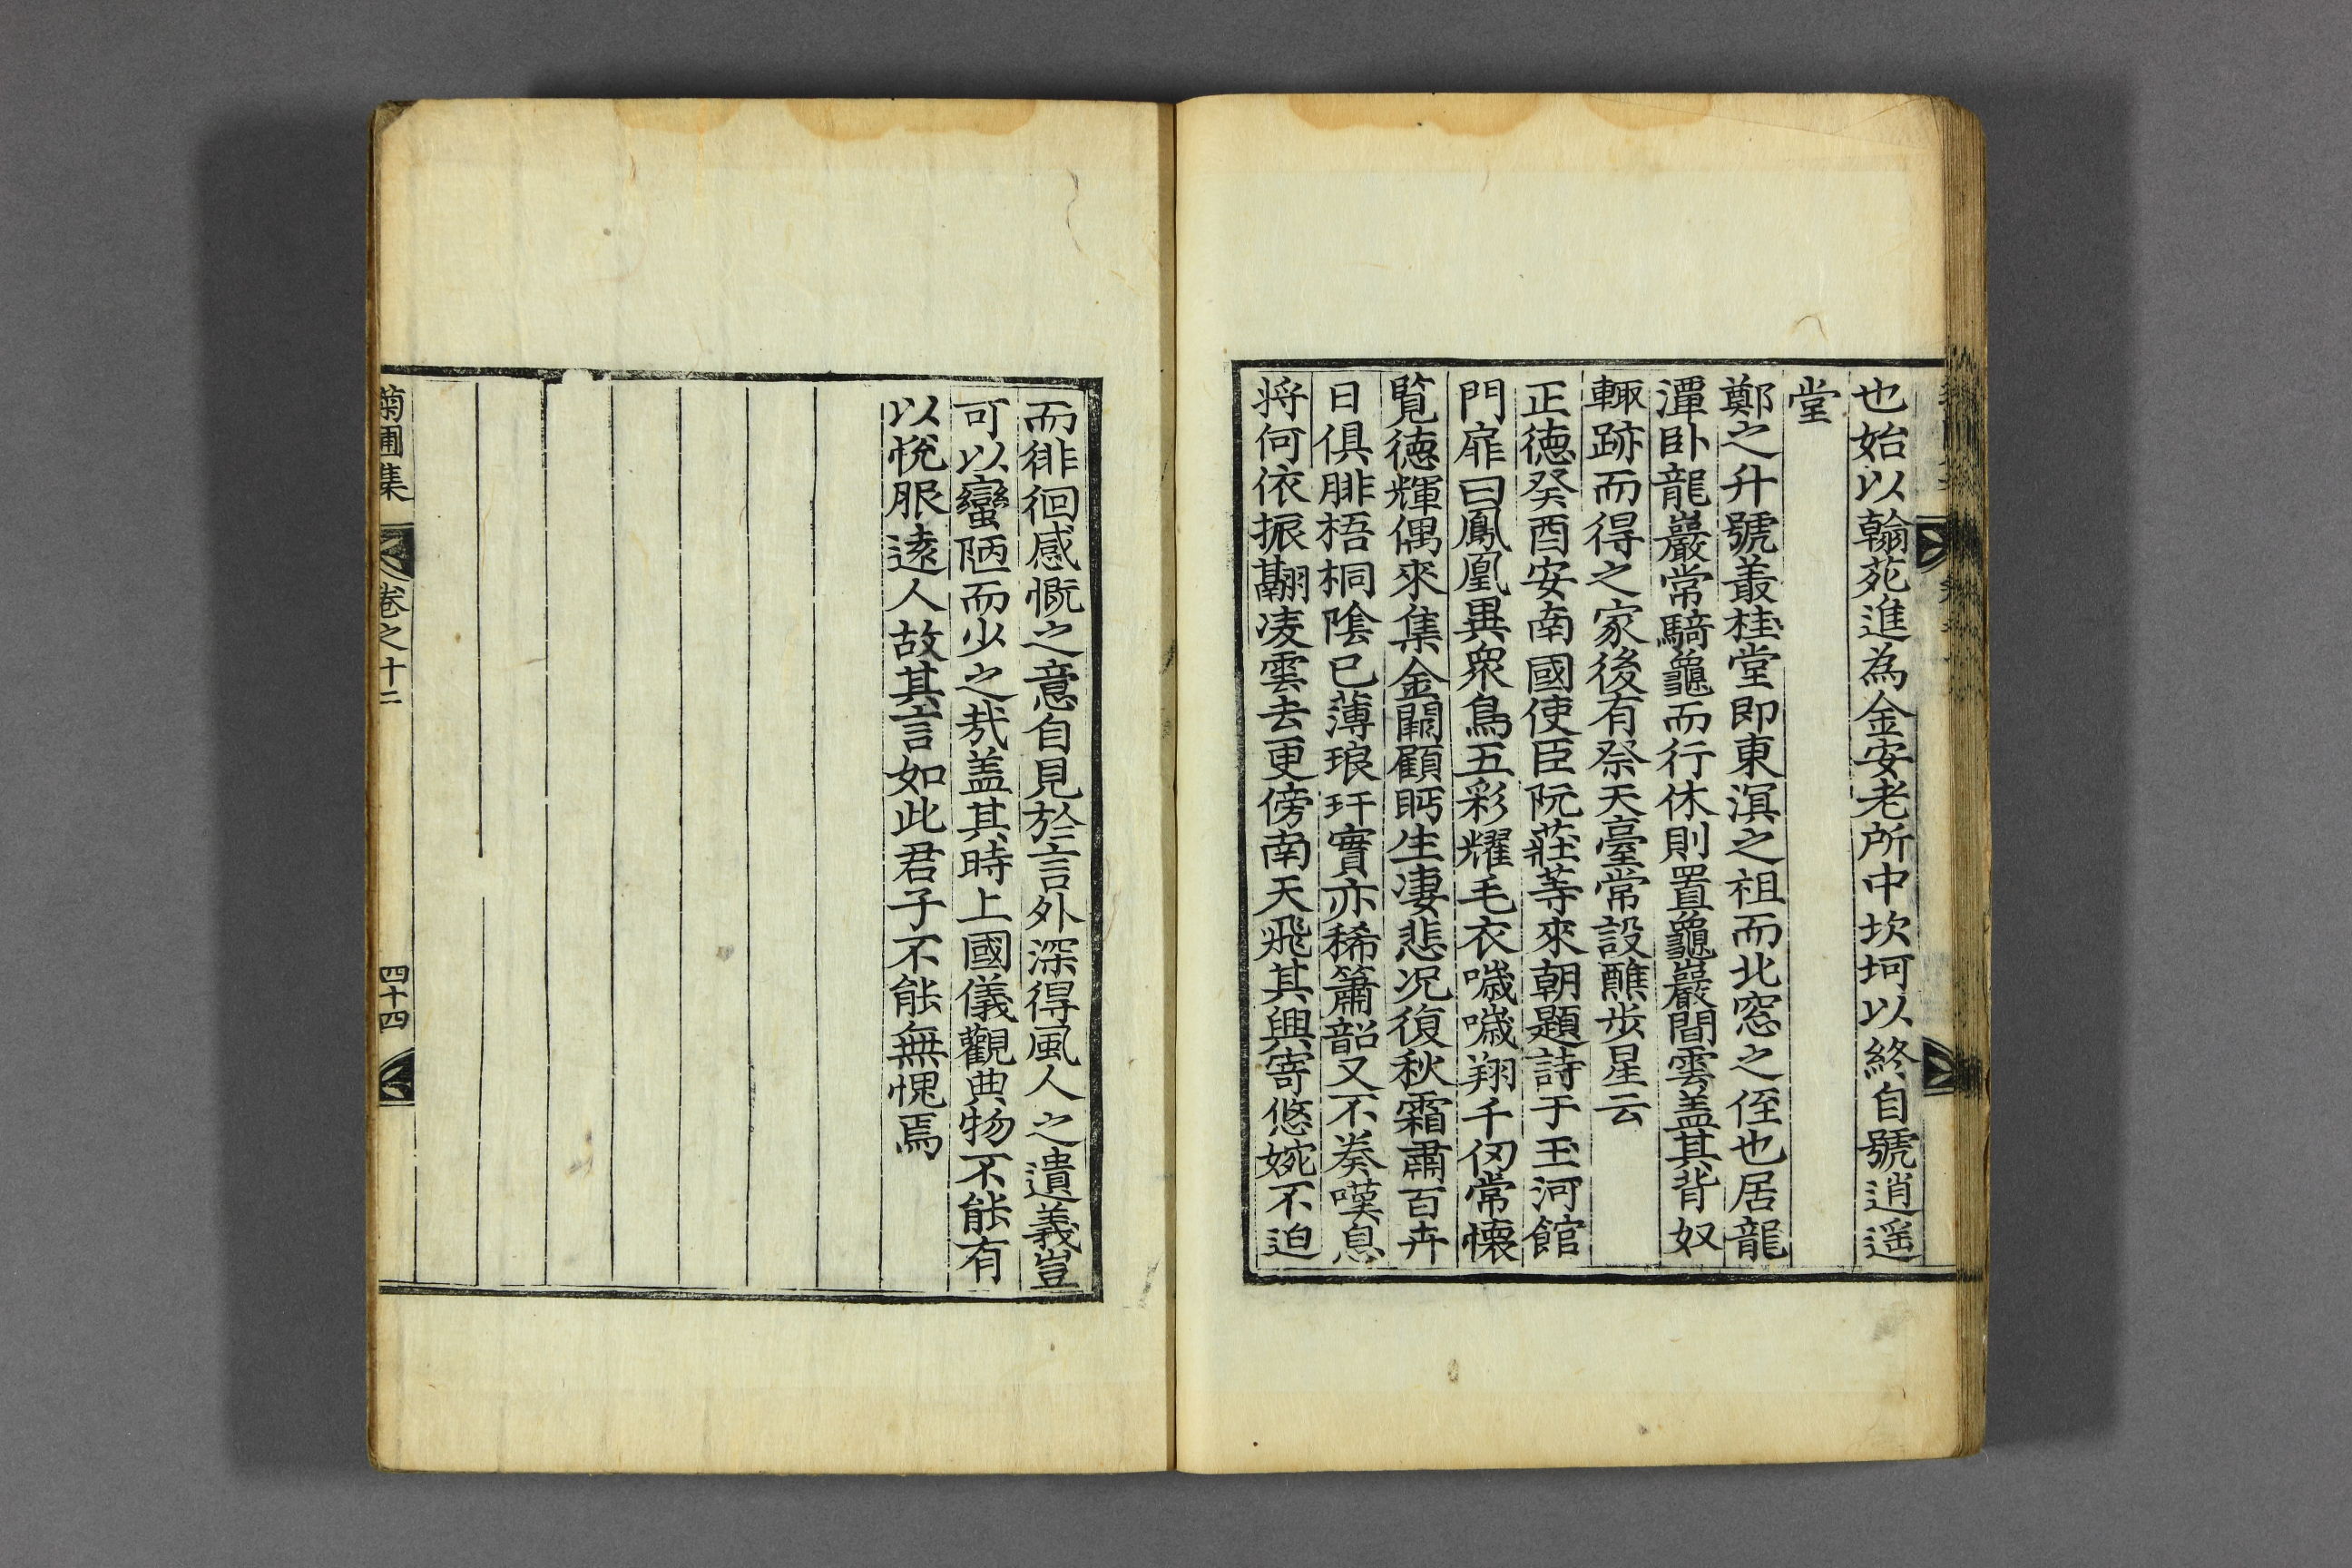 也始以翰苑進為金安老所中坎坷以終自號逍遥
堂
鄭之升號叢桂堂即東溟之祖而北窓之侄也居龍
潭卧龍巖常騎龜而行休則置龜巖間雲盖其背奴
輙跡而得之家後有祭天臺常設醮步星云
正德癸酉安南國使臣阮莊等來朝題詩于玉河館
門扉曰鳳凰異衆鳥五彩耀毛衣噦噦翔千仞常懷
覧德輝偶來集金闕顧眄生凄悲况復秋霜肅百卉
日俱腓梧桐陰已薄琅玕實亦稀簫韶又不奏嘆息
将何依振翮凌雲去更傍南天飛其興寄悠婉不迫
而徘徊感慨之意自見於言外深得風人之遺義豈
可以蠻陋而少之㢤盖其時上國儀觀典物不能有
以悅服逺人故其言如此君子不能無愧焉
菊圃集 卷之十二 四十四